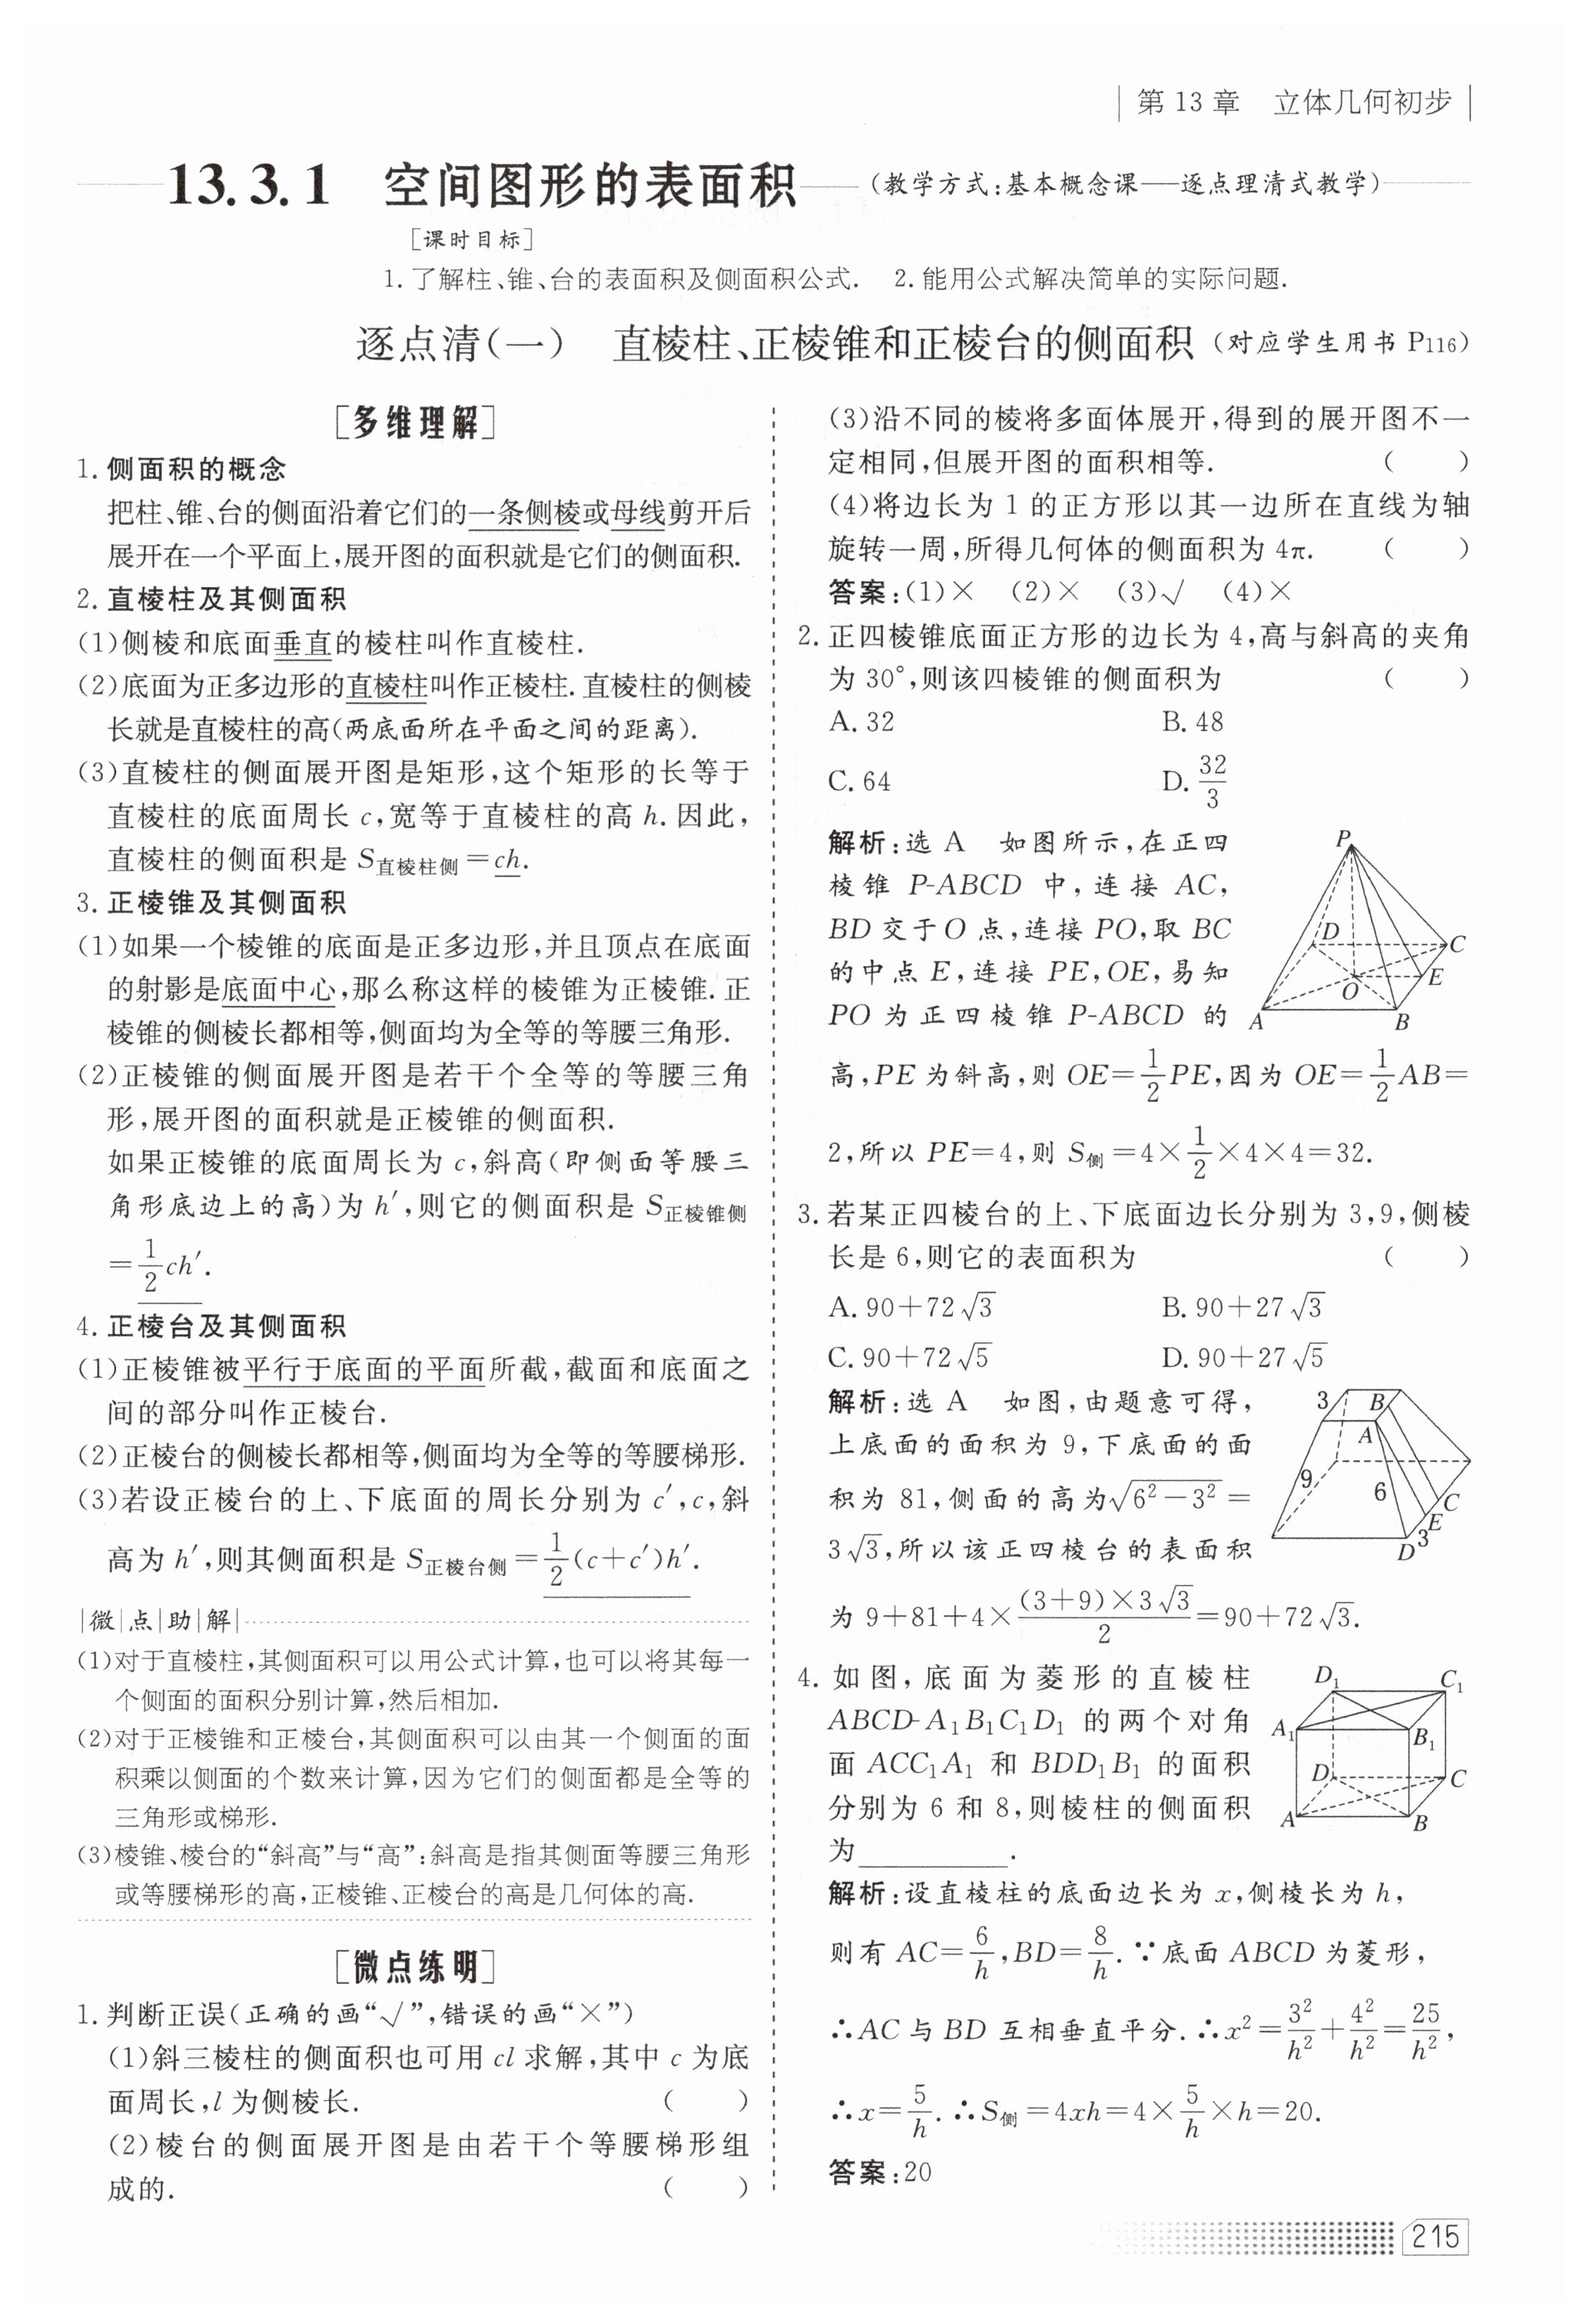 第 13 章 立体几何初步
13.3.1 空间图形的表面积 (教学方式:基本概念课——逐点理清式教学)
[课时目标]
1.了解柱、锥、台的表面积及侧面积公式. 2.能用公式解决简单的实际问题.
逐点清(一) 直棱柱、正棱锥和正棱台的侧面积 (对应学生用书 P116)
[多维理解]
1.侧面积的概念
把柱、锥、台的侧面沿着它们的一条侧棱或母线剪开后
展开在一个平面上,展开图的面积就是它们的侧面积.
2.直棱柱及其侧面积
(1)侧棱和底面垂直的棱柱叫作直棱柱.
(2)底面为正多边形的直棱柱叫作正棱柱.直棱柱的侧棱
长就是直棱柱的高(两底面所在平面之间的距离).
(3)直棱柱的侧面展开图是矩形,这个矩形的长等于
直棱柱的底面周长 c,宽等于直棱柱的高 h.因此,
直棱柱的侧面积是 S直棱柱侧=ch.
3.正棱锥及其侧面积
(1)如果一个棱锥的底面是正多边形,并且顶点在底面
的射影是底面中心,那么称这样的棱锥为正棱锥.正
棱锥的侧棱长都相等,侧面均为全等的等腰三角形.
(2)正棱锥的侧面展开图是若干个全等的等腰三角
形,展开图的面积就是正棱锥的侧面积.
如果正棱锥的底面周长为 c,斜高(即侧面等腰三
角形底边上的高)为 h′,则它的侧面积是 S正棱锥侧
=1/2ch′.
4.正棱台及其侧面积
(1)正棱锥被平行于底面的平面所截,截面和底面之
间的部分叫作正棱台.
(2)正棱台的侧棱长都相等,侧面均为全等的等腰梯形.
(3)若设正棱台的上、下底面的周长分别为 c′,c,斜
高为 h′,则其侧面积是 S正棱台侧=1/2(c+c′)h′.
|微|点|助|解|
(1)对于直棱柱,其侧面积可以用公式计算,也可以将其每一
个侧面的面积分别计算,然后相加.
(2)对于正棱锥和正棱台,其侧面积可以由其一个侧面的面
积乘以侧面的个数来计算,因为它们的侧面都是全等的
三角形或梯形.
(3)棱锥、棱台的“斜高”与“高”:斜高是指其侧面等腰三角形
或等腰梯形的高,正棱锥、正棱台的高是几何体的高.
[微点练明]
1.判断正误(正确的画“√”,错误的画“×”)
(1)斜三棱柱的侧面积也可用 cl 求解,其中 c 为底
面周长,l 为侧棱长. ( )
(2)棱台的侧面展开图是由若干个等腰梯形组
成的. ( )
(3)沿不同的棱将多面体展开,得到的展开图不一
定相同,但展开图的面积相等. ( )
(4)将边长为 1 的正方形以其一边所在直线为轴
旋转一周,所得几何体的侧面积为 4π. ( )
答案:(1)× (2)× (3)√ (4)×
2.正四棱锥底面正方形的边长为 4,高与斜高的夹角
为 30°,则该四棱锥的侧面积为 ( )
A. 32 B. 48
C. 64 D. 32/3
解析:选 A 如图所示,在正四
棱锥 P-ABCD 中,连接 AC,
BD 交于 O 点,连接 PO,取 BC
的中点 E,连接 PE,OE,易知
PO 为正四棱锥 P-ABCD 的
P
D
C
E
O
A
B
高,PE 为斜高,则 OE=1/2PE,因为 OE=1/2AB=
2,所以 PE=4,则 S侧=4×1/2×4×4=32.
3.若某正四棱台的上、下底面边长分别为 3,9,侧棱
长是 6,则它的表面积为 ( )
A. 90+72√3 B. 90+27√3
C. 90+72√5 D. 90+27√5
解析:选 A 如图,由题意可得,
上底面的面积为 9,下底面的面
积为 81,侧面的高为√(6²-3²)=
3√3,所以该正四棱台的表面积
3
B
A
9
6
C
E
3
D
为 9+81+4×((3+9)×3√3)/2=90+72√3.
4.如图,底面为菱形的直棱柱
ABCD-A₁B₁C₁D₁ 的两个对角
面 ACC₁A₁ 和 BDD₁B₁ 的面积
分别为 6 和 8,则棱柱的侧面积
为________.
D₁
C₁
A₁
B₁
D
C
A
B
解析:设直棱柱的底面边长为 x,侧棱长为 h,
则有 AC=6/h,BD=8/h.∵底面 ABCD 为菱形,
∴AC 与 BD 互相垂直平分.∴x²=3²/h²+4²/h²=25/h²,
∴x=5/h.∴S侧=4xh=4×5/h×h=20.
答案:20
215